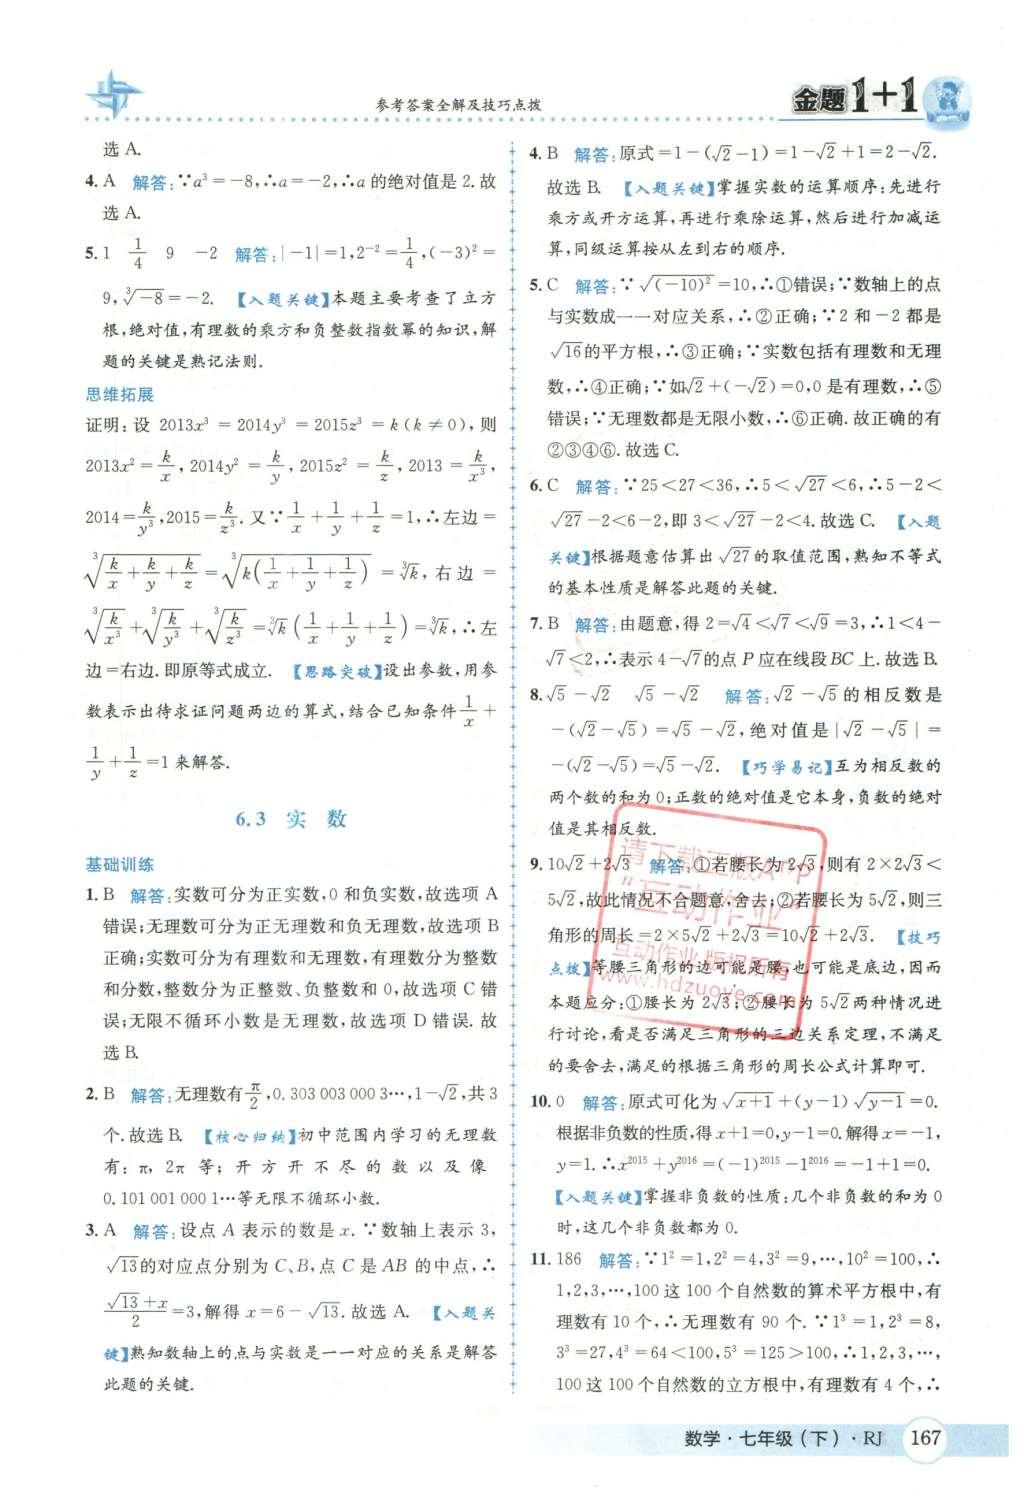 参考答案全解及技巧点拨
金题1+1
选 A.
4. A 解答:∵a³=-8,∴a=-2,∴a 的绝对值是 2. 故
选 A.
5. 1 1/4 9 -2 解答:|-1|=1,2⁻²=1/4,(-3)²=
9,∛-8=-2. 【入题关键】本题主要考查了立方
根,绝对值,有理数的乘方和负整数指数幂的知识,解
题的关键是熟记法则.
思维拓展
证明:设 2013x³=2014y³=2015z³=k(k≠0),则
2013x²=k/x,2014y²=k/y,2015z²=k/z,2013=k/x³,
2014=k/y³,2015=k/z³. 又∵1/x+1/y+1/z=1,∴左边=
∛(k/x+k/y+k/z)=∛(k(1/x+1/y+1/z))=∛k,右边=
∛(k/x³)+∛(k/y³)+∛(k/z³)=∛k(1/x+1/y+1/z)=∛k,∴左
边=右边. 即原等式成立. 【思路突破】设出参数,用参
数表示出待求证问题两边的算式,结合已知条件1/x+
1/y+1/z=1来解答.
6.3 实 数
基础训练
1. B 解答:实数可分为正实数,0 和负实数,故选项 A
错误;无理数可分为正无理数和负无理数,故选项 B
正确;实数可分为有理数和无理数,有理数分为整数
和分数,整数分为正整数、负整数和 0,故选项 C 错
误;无限不循环小数是无理数,故选项 D 错误. 故
选 B.
2. B 解答:无理数有π/2,0.303 003 000 3…,1-√2,共 3
个. 故选 B. 【核心归纳】初中范围内学习的无理数
有: π, 2π 等;开方开不尽的数以及像
0.101 001 000 1…等无限不循环小数.
3. A 解答:设点 A 表示的数是 x. ∵数轴上表示 3,
√13的对应点分别为 C、B,点 C 是 AB 的中点,∴
(√13+x)/2=3,解得 x=6-√13. 故选 A. 【入题关
键】熟知数轴上的点与实数是一一对应的关系是解答
此题的关键.
4. B 解答:原式=1-(√2-1)=1-√2+1=2-√2.
故选 B. 【入题关键】掌握实数的运算顺序:先进行
乘方或开方运算,再进行乘除运算,然后进行加减运
算,同级运算按从左到右的顺序.
5. C 解答:∵√(-10)²=10,∴①错误;∵数轴上的点
与实数成一一对应关系,∴②正确;∵2 和-2 都是
√16的平方根,∴③正确;∵实数包括有理数和无理
数,∴④正确;∵如√2+(-√2)=0,0 是有理数,∴⑤
错误;∵无理数都是无限小数,∴⑥正确. 故正确的有
②③④⑥. 故选 C.
6. C 解答:∵25<27<36,∴5<√27<6,∴5-2<
√27-2<6-2,即 3<√27-2<4. 故选 C. 【入题
关键】根据题意估算出√27的取值范围,熟知不等式
的基本性质是解答此题的关键.
7. B 解答:由题意,得 2=√4<√7<√9=3,∴1<4-
√7<2,∴表示 4-√7的点 P 应在线段 BC 上. 故选 B.
8. √5-√2 √5-√2 解答:√2-√5的相反数是
-(√2-√5)=√5-√2,绝对值是|√2-√5|=
-(√2-√5)=√5-√2. 【巧学易记】互为相反数的
两个数的和为 0;正数的绝对值是它本身,负数的绝对
值是其相反数.
9. 10√2+2√3 解答:①若腰长为 2√3,则有 2×2√3<
5√2,故此情况不合题意,舍去;②若腰长为 5√2,则三
角形的周长=2×5√2+2√3=10√2+2√3. 【技巧
点拨】等腰三角形的边可能是腰,也可能是底边,因而
本题应分:①腰长为 2√3;②腰长为 5√2两种情况进
行讨论,看是否满足三角形的三边关系定理,不满足
的要舍去,满足的根据三角形的周长公式计算即可.
10. 0 解答:原式可化为√x+1+(y-1)√y-1=0.
根据非负数的性质,得 x+1=0,y-1=0. 解得 x=-1,
y=1. ∴x²⁰¹⁵+y²⁰¹⁶=(-1)²⁰¹⁵-1²⁰¹⁶=-1+1=0.
【入题关键】掌握非负数的性质:几个非负数的和为 0
时,这几个非负数都为 0.
11. 186 解答:∵1²=1,2²=4,3²=9,…,10²=100,∴
1,2,3,…,100 这 100 个自然数的算术平方根中,有
理数有 10 个,∴无理数有 90 个. ∵1³=1,2³=8,
3³=27,4³=64<100,5³=125>100,∴1,2,3,…,
100 这 100 个自然数的立方根中,有理数有 4 个,∴
请下载正版App
“互动作业”
互动作业 版权所有
www.hdzuoye.com
数学·七年级(下)·RJ 167